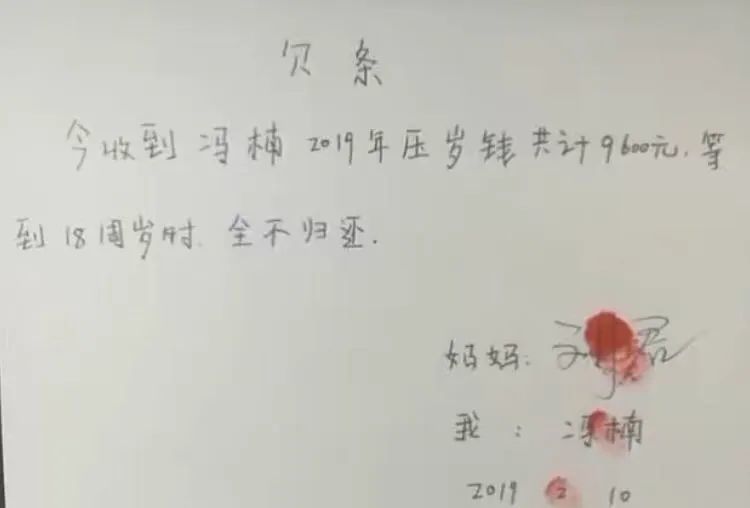 欠条
今收到冯楠2019年压岁钱共计9600元.等
到18周岁时.全不归还.
妈妈:
我:冯楠
2019 2 10